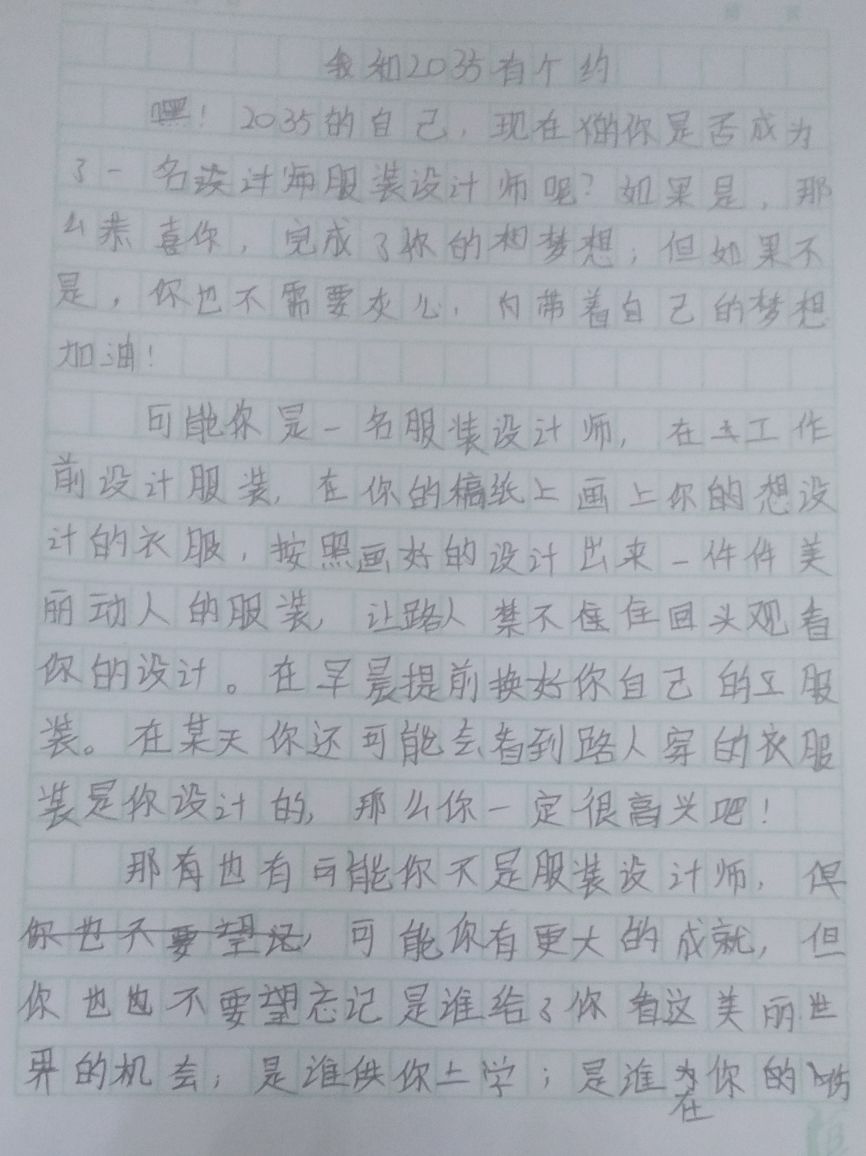 我和2035有个约
嘿！2035的自己，现在的你是否成为
了一名设计师服装设计师呢？如果是，那
么恭喜你，完成了你的梦想；但如果不
是，你也不需要灰心，向带着自己的梦想
加油！
可能你是一名服装设计师，在工作
前设计服装，在你的稿纸上画上你的想设
计的衣服，按照画好的设计出来一件件美
丽动人的服装，让路人禁不住住回头观看
你的设计。在早晨提前换好你自己的工服
装。在某天你还可能会看到路人穿的衣服
装是你设计的，那么你一定很高兴吧！
那有也有可能你不是服装设计师，但
你也不要望记，可能你有更大的成就，但
你也也不要望忘记是谁给了你看这美丽世
界的机会；是谁供你上学；是谁在你的